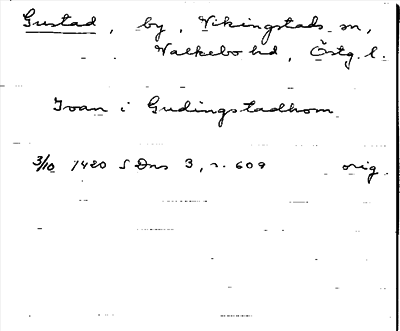 Gustad, by, Vikingstads sn,
Valkebo hd, Östg. l.
Ivan i Gudingstadhom
3/10 1420 SDns 3, n. 609 orig.